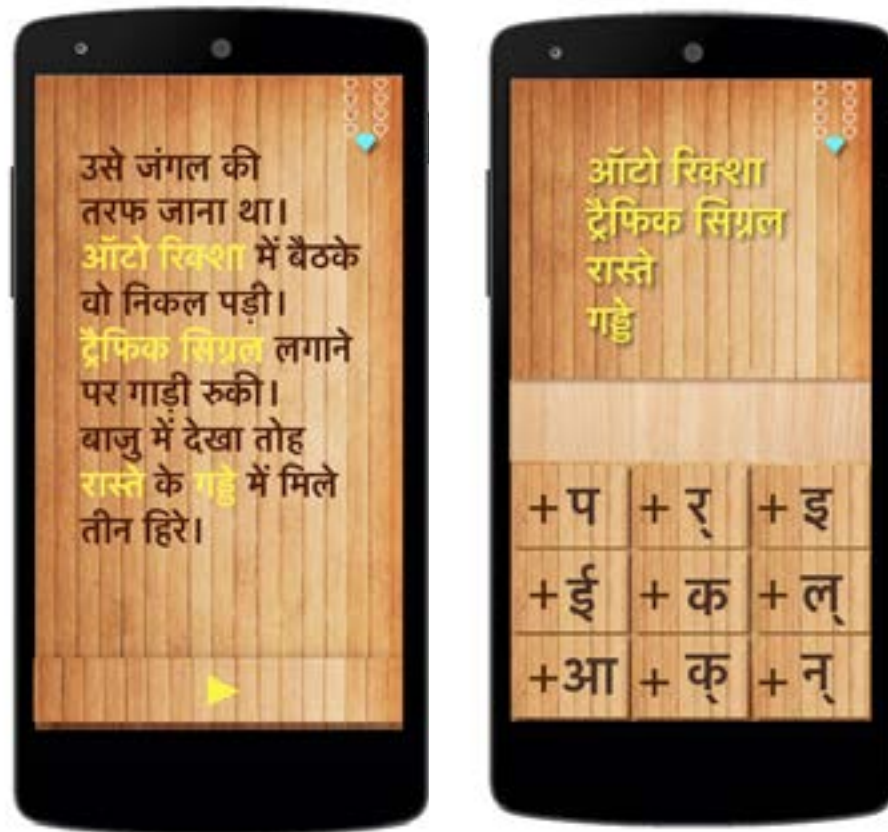 उसे जंगल की
तरफ जाना था।
ऑटो रिक्शा में बैठके
वो निकल पड़ी।
ट्रैफिक सिग्नल लगाने
पर गाड़ी रुकी।
बाजु में देखा तोह
रास्ते के गड्ढे में मिले
तीन हिरे।
ऑटो रिक्शा
ट्रैफिक सिग्नल
रास्ते
गड्ढे
+प +र् +इ
+ई +क +ल्
+आ +क् +न्